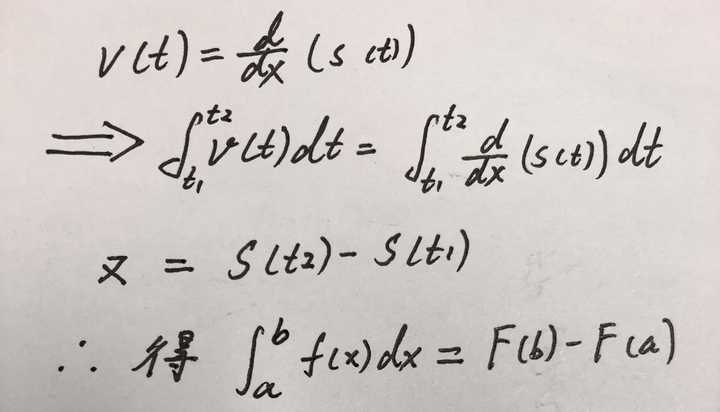 v(t) = d/dx (s(t))
⟹ ∫_{t1}^{t2} v(t)dt = ∫_{t1}^{t2} d/dx (s(t)) dt
又 = S(t2) - S(t1)
∴ 得 ∫_a^b f(x)dx = F(b) - F(a)